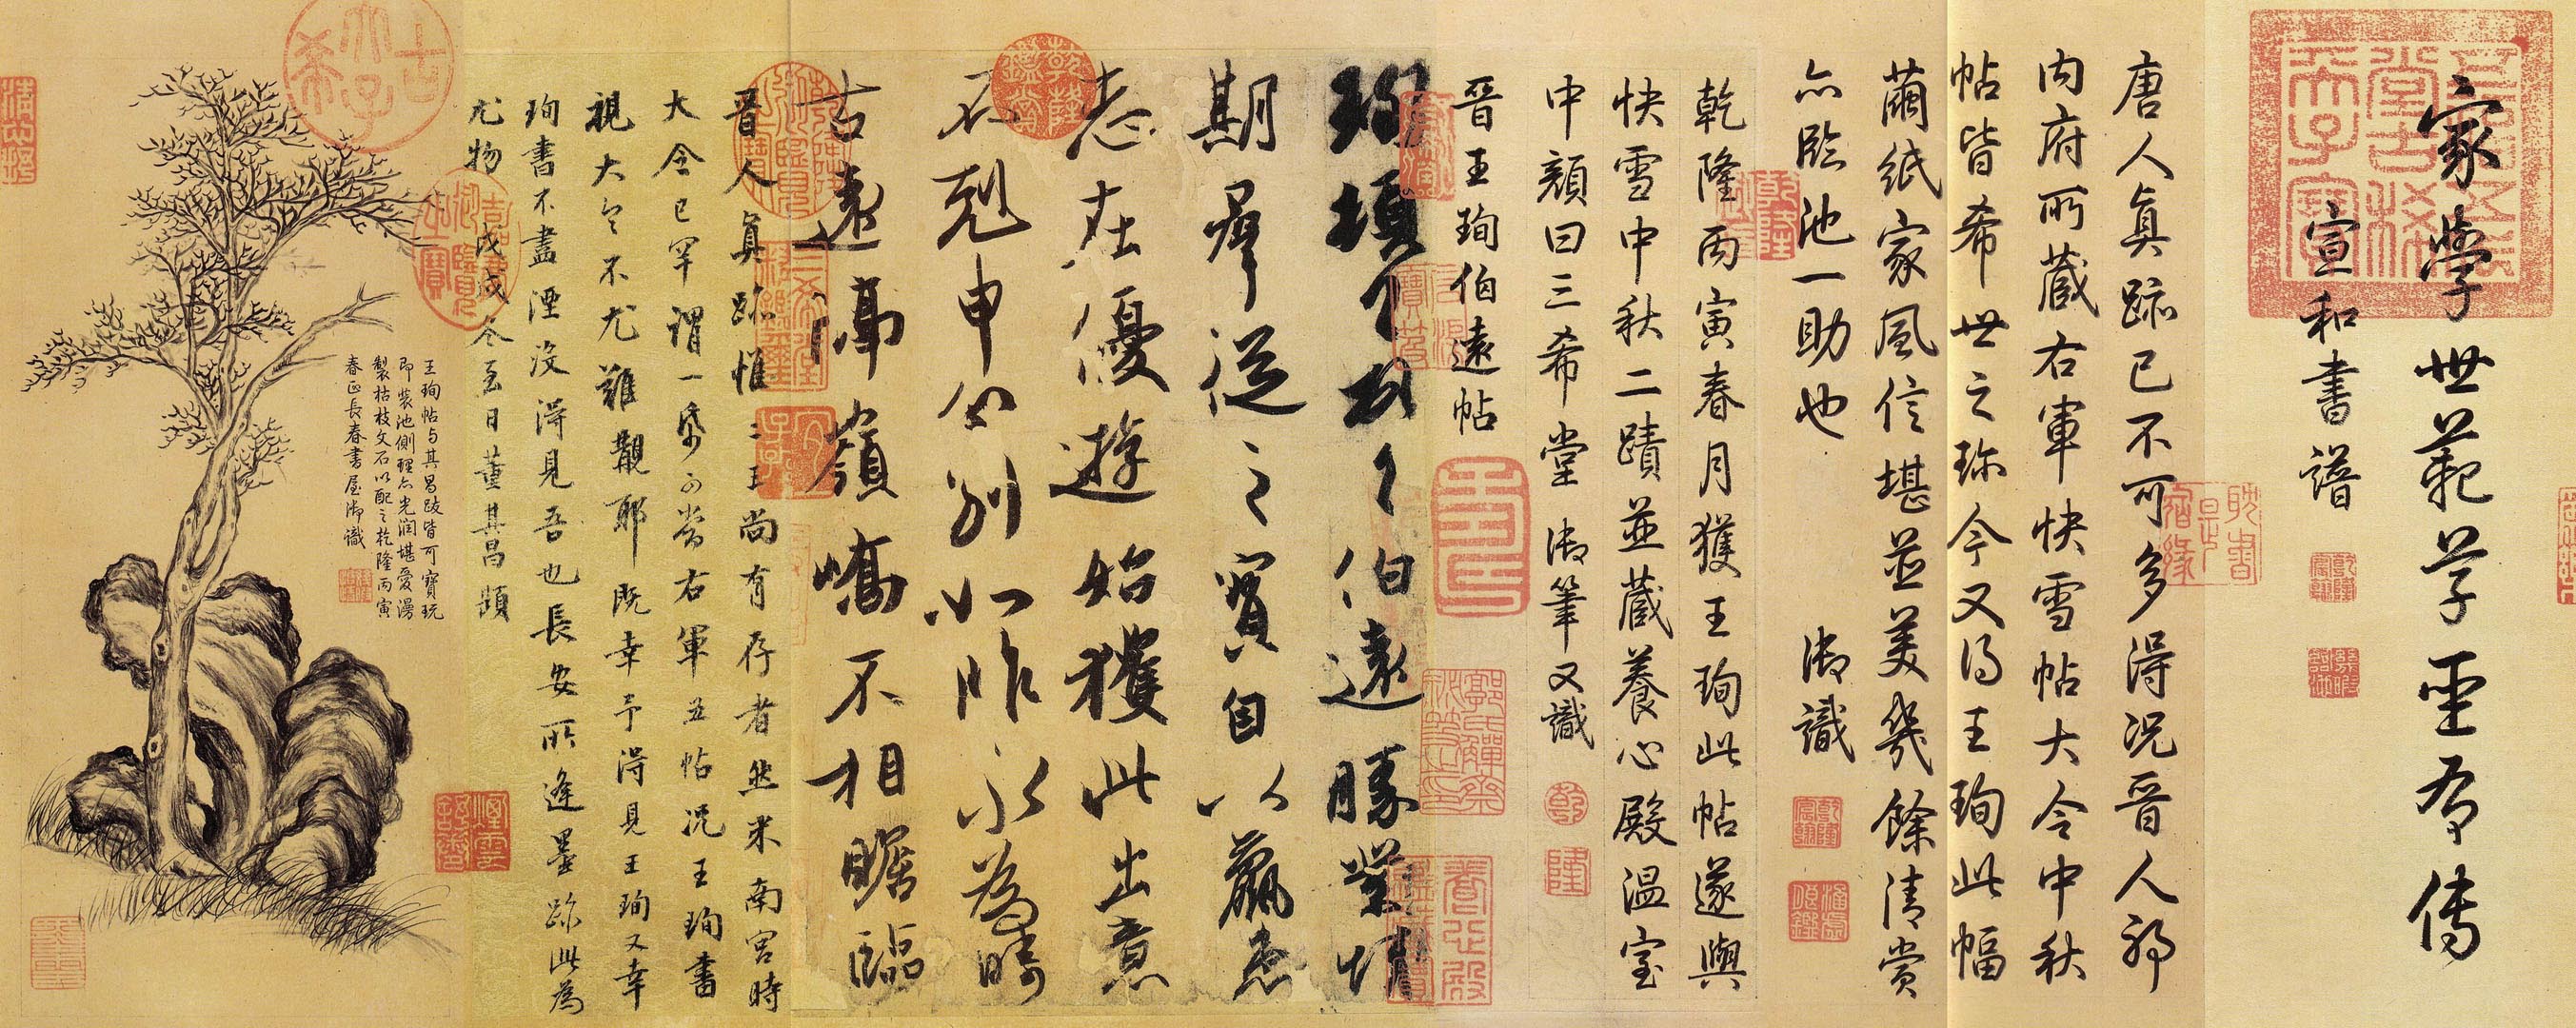 家學世範草聖有傳
宣和書譜
唐人真跡已不可多得况晉人耶
内府所藏右軍快雪帖大令中秋
帖皆希世之珍今又得王珣此幅
繭紙家風信堪並美幾餘清賞
亦臨池一助也 御識
乾隆丙寅春月獲王珣此帖遂與
快雪中秋二蹟並藏養心殿温室
中顏曰三希堂 御筆又識
晉王珣伯遠帖
珣頓首頓首伯遠勝業情
期羣從之寶自以羸患
志在優遊始獲此出意
不剋申分別如昨永為疇
古遠隔嶺嶠不相瞻臨
晉人真跡惟二王尚有存者然米南宮時
大令已罕謂一紙可當右軍五帖况王珣書
視大令不尤難覯耶既幸予得見王珣又幸
珣書不盡湮沒得見吾也長安所逢墨跡此為
尤物 戊戌冬至日董其昌題
王珣帖与其昌跋皆可寶玩
即裝池側理亦光潤堪愛漫
製枯枝文石以配之乾隆丙寅
春正長春書屋御識
古稀天子
乾隆
三希堂